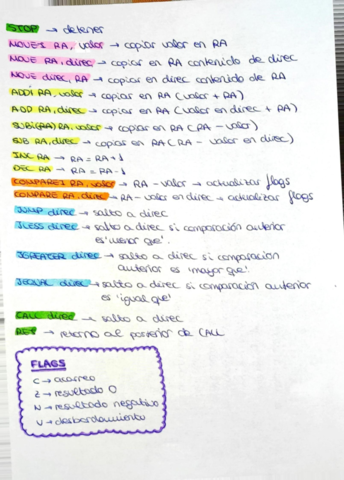 STOP → detener
MOVEI RA, valor → copiar valor en RA
MOVE RA, direc → copiar en RA contenido de direc
MOVE direc, RA → copiar en direc contenido de RA
ADDI RA, valor → copiar en RA (valor + RA)
ADD RA, direc → copiar en RA (valor en direc + RA)
SUBI(RA) RA, valor → copiar en RA (RA - valor)
SUB RA, direc → copiar en RA (RA - valor en direc)
INC RA → RA = RA + 1
DEC RA → RA = RA - 1
COMPAREI RA, valor → RA - valor → actualizar flags
COMPARE RA, direc → RA - valor en direc → actualizar flags
JUMP direc → salto a direc
JLESS direc → salto a direc si comparación anterior
es 'menor que'.
JGREATER direc → salto a direc si comparación
anterior es 'mayor que'.
JEQUAL direc → salto a direc si comparación anterior
es 'igual que'
CALL direc → salto a direc
RET → retorno al posterior de CALL
FLAGS
C → acarreo
Z → resultado 0
N → resultado negativo
V → desbordamiento